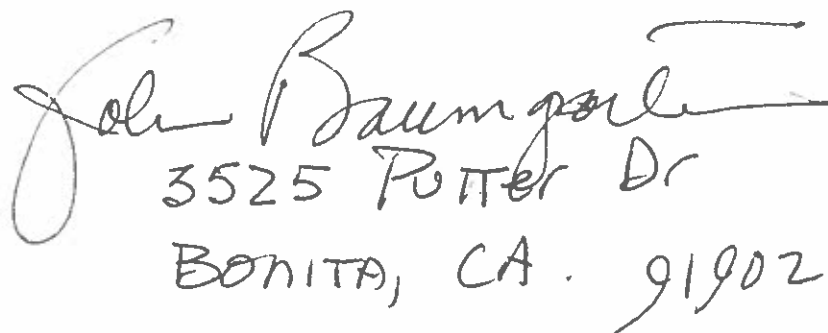 John Baumgarten
3525 Putter Dr
BONITA, CA. 91902